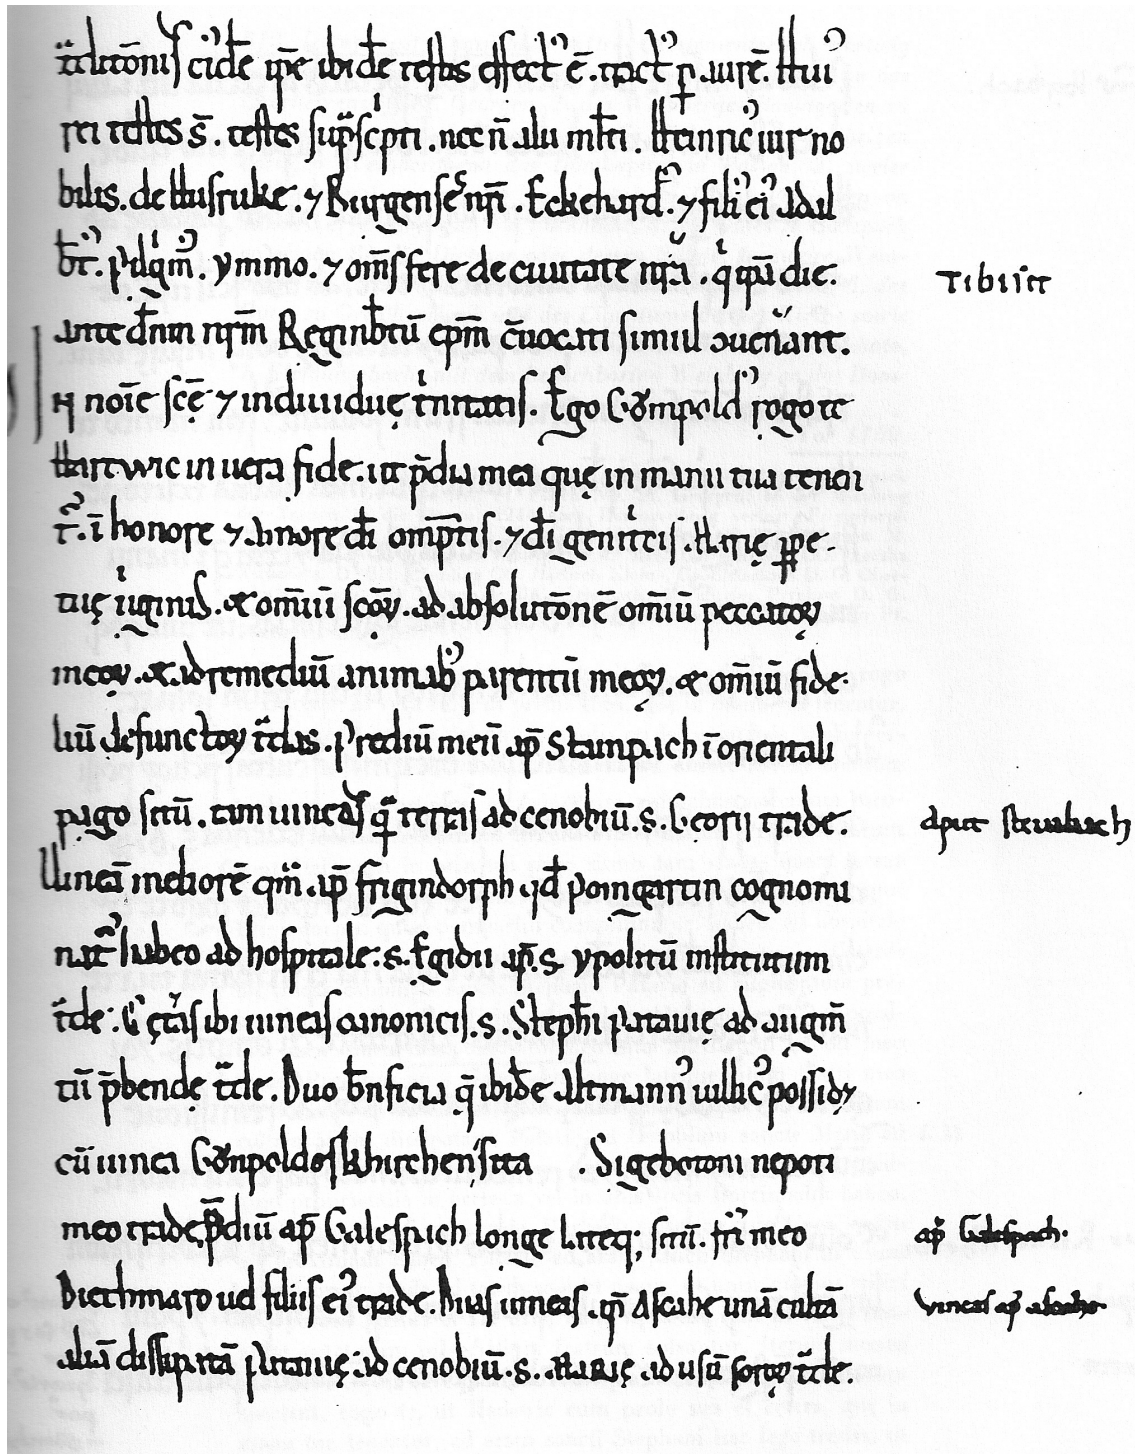 t̄ditōnis cui'dē ip̄e ibidē testis effect' ē. tract' p aurē. Hui'
rei testes s̄. testes sup̄scpti. nec n̄ alii ml̄ti. Heinric' uir no
bilis. de Husruke. ⁊ Burgensēs nr̄i. Eckehard'. ⁊ filii ei' Adal
b̄t'. ⁊ ymmo. ⁊ om̄s fere de ciuitate nr̄a. qui ip̄a die.
ante dn̄m nr̄m Reginb̄tū ep̄m cuocati simul ɔuen̄ant.
Tibiitt
N noīe scē ⁊ indiuiduę t̄nitatis. Ego Gōmpold' rogo te
Hartwic in uera fide. ut p̄dia mea quę in manu tua tenen
t'. ī honore ⁊ amore dī omp̄tis. ⁊ dī genit̄cis. Marię ppe
tuę uirginis. & om̄iū scōꝝ. ad absolutōnē om̄iū peccatoꝝ
meoꝝ. & ad remediū animab' parentū meoꝝ. & om̄iū fide
liū defunctoꝝ t̄das. Prediū meū ap̄ Stanpach ī orientali
pago sitū. tam uineas q̄ terras ad cenobiū. s. Georii trade.
aput steinbach
Uineā meliorē qm̄. ap̄ frigindorph. qd̄ poingartin cognomi
nat' habeo ad hospitale. s. Egidii ap̄. s. ypolitū institutum
t̄de. Cęt̄as ibi uineas canonicis. s. Steph̄i patauię ad augm̄
tū p̄bendę t̄de. Duo bn̄ficia q̄ ibidē Altmann' uillic' possidꝫ
cū uinea Gōnpoldeskhirchen sita. Sigebotoni nepoti
meo trade. p̄diū ap̄ Galespach longe lateq; sitū. fr̄i meo
ap̄ Galespach.
Diethmaro uel filiis ei' trade. Duas uineas. qn̄ Ascahe unā cultā
vineas ap̄ ascahe
aliā dissipatā patauię. ad cenobiū. s. Marię ad usū soroꝝ t̄de.